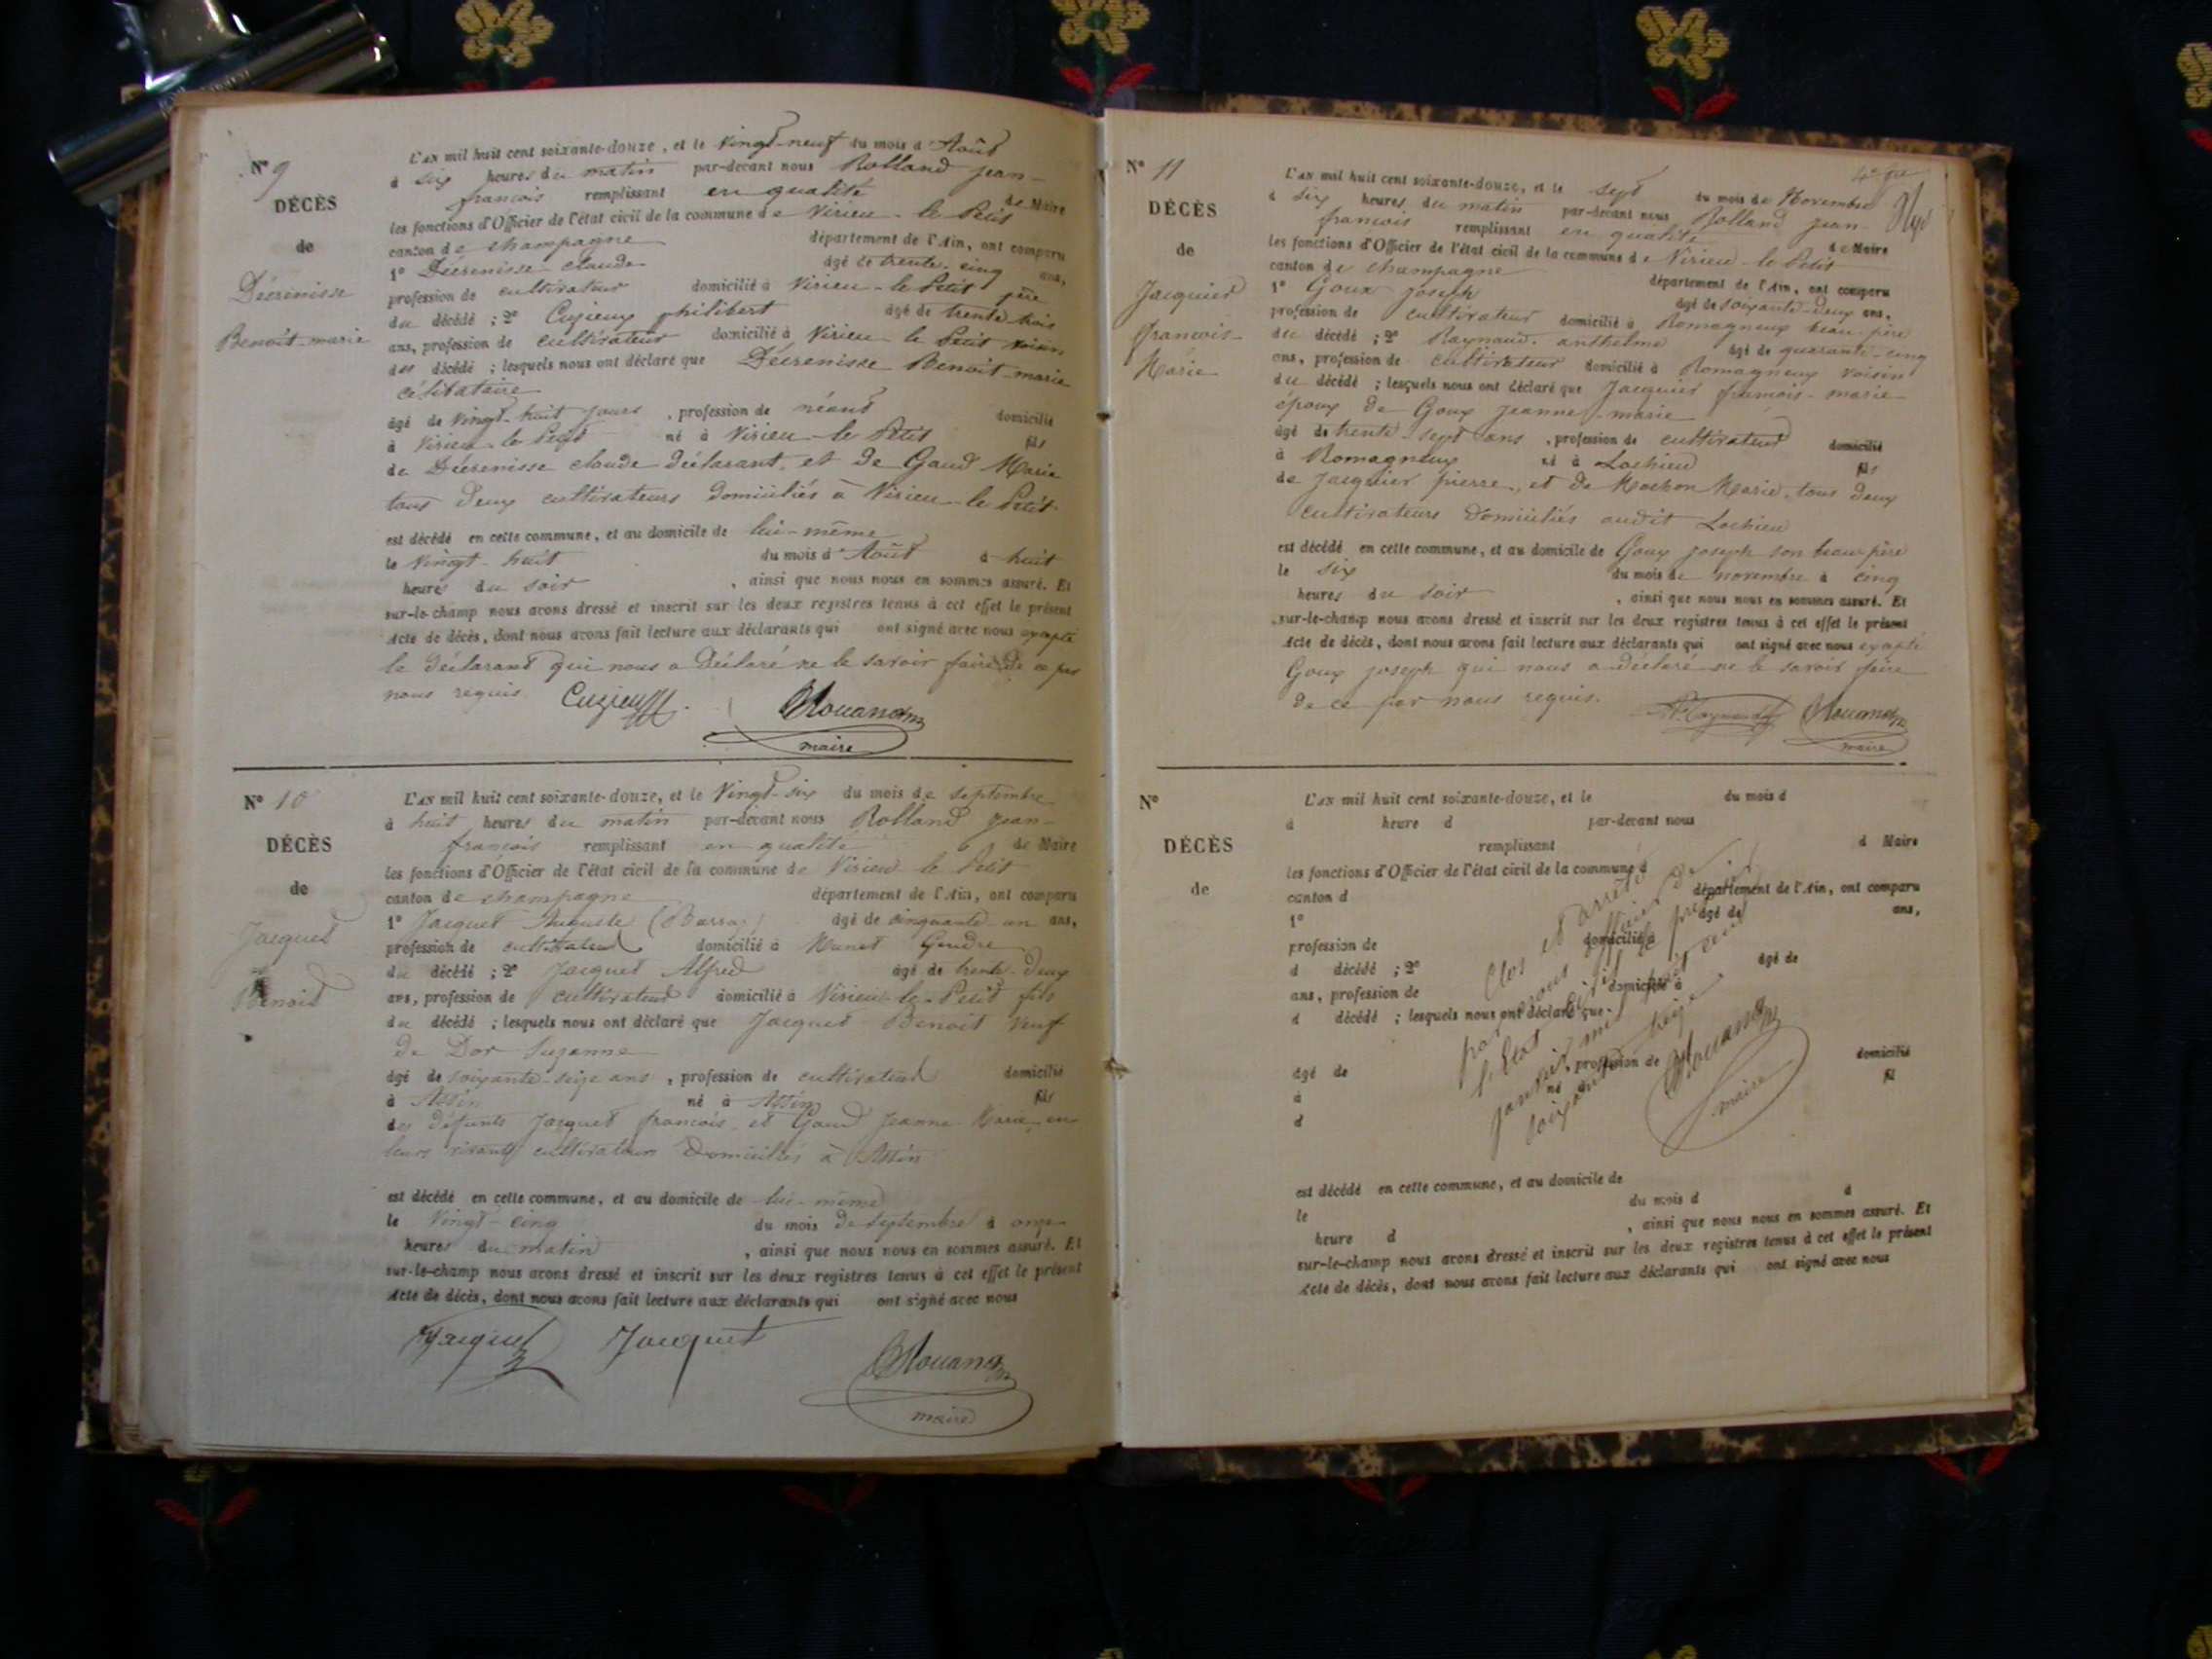 N° 9
DÉCÈS
de
Décrenisse
Benoit-marie
L'AN mil huit cent soixante-douze, et le Vingt-neuf du mois d'Août
à six heures du matin par-devant nous Rolland jean-
françois remplissant en qualité de Maire
les fonctions d'Officier de l'état civil de la commune de Virieu-le Petit
canton de champagne département de l'Ain, ont comparu
1° Décrenisse claude âgé de trente-cinq ans,
profession de cultivateur domicilié à Virieu-le Petit père
du décédé ; 2° Cuzieux philibert âgé de trente trois
ans, profession de cultivateur domicilié à Virieu le Petit voisin
du décédé ; lesquels nous ont déclaré que Décrenisse Benoit-marie
célibataire
âgé de Vingt-huit jours , profession de néant domicilié
à Virieu-le Petit né à Virieu-le Petit fils
de Décrenisse claude déclarant, et de Gaud Marie
tous deux cultivateurs domiciliés à Virieu-le Petit
est décédé en cette commune, et au domicile de lui-même
le Vingt-huit du mois d'Août à huit
heures du soir , ainsi que nous nous en sommes assuré. Et
sur-le-champ nous avons dressé et inscrit sur les deux registres tenus à cet effet le présent
Acte de décès, dont nous avons fait lecture aux déclarants qui ont signé avec nous excepté
le déclarant qui nous a déclaré ne le savoir faire de ce par
nous requis. Cuzieux
maire
N° 10
DÉCÈS
de
Jacquet
Benoit
L'AN mil huit cent soixante-douze, et le Vingt-six du mois de septembre
à huit heures du matin par-devant nous Rolland jean-
françois remplissant en qualité de Maire
les fonctions d'Officier de l'état civil de la commune de Virieu le Petit
canton de champagne département de l'Ain, ont comparu
1° Jacquet Auguste (Barraz) âgé de cinquante-un ans,
profession de cultivateur domicilié à Munet Gendre
du décédé ; 2° Jacquet Alfred âgé de trente-deux
ans, profession de cultivateur domicilié à Virieu-le-Petit fils
du décédé ; lesquels nous ont déclaré que Jacquet Benoit Veuf
de Dor Suzanne
âgé de soixante-seize ans , profession de cultivateur domicilié
à Assin né à Assin fils
des défunts Jacquet françois, et Gaud Jeanne Marie, en
leurs vivants cultivateurs Domiciliés à Assin
est décédé en cette commune, et au domicile de lui-même
le Vingt-cinq du mois de septembre à onze
heures du matin , ainsi que nous nous en sommes assuré. Et
sur-le-champ nous avons dressé et inscrit sur les deux registres tenus à cet effet le présent
Acte de décès, dont nous avons fait lecture aux déclarants qui ont signé avec nous
Jacquet Jacquet
maire
N° 11
DÉCÈS
de
Jacquier
francois-
Marie
L'AN mil huit cent soixante-douze, et le sept du mois de Novembre
à six heures du matin par-devant nous Rolland jean-
francois remplissant en qualité de Maire
les fonctions d'Officier de l'état civil de la commune de Virieu-le Petit
canton de champagne département de l'Ain, ont comparu
1° Goux joseph âgé de soixante-deux ans,
profession de cultivateur domicilié à Romagneux beau-père
du décédé ; 2° Raynaud anthelme âgé de quarante-cinq
ans, profession de cultivateur domicilié à Romagneux voisin
du décédé ; lesquels nous ont déclaré que Jacquier françois-marie
époux de Goux jeanne-marie
âgé de trente-sept ans , profession de cultivateur domicilié
à Romagneux né à Lochieu fils
de Jacquier pierre, et de Mochon Marie, tous deux
cultivateurs domiciliés audit Lochieu
est décédé en cette commune, et au domicile de Goux joseph son beau-père
le six du mois de novembre à cinq
heures du soir , ainsi que nous nous en sommes assuré. Et
sur-le-champ nous avons dressé et inscrit sur les deux registres tenus à cet effet le présent
Acte de décès, dont nous avons fait lecture aux déclarants qui ont signé avec nous excepté
Goux joseph qui nous a déclaré ne le savoir faire
de ce par nous requis.
maire
N°
DÉCÈS
de
L'AN mil huit cent soixante-douze, et le du mois d
à heure d par-devant nous
remplissant d Maire
les fonctions d'Officier de l'état civil de la commune d
canton d département de l'Ain, ont comparu
1° âgé de ans,
profession de domicilié à
d décédé ; 2° âgé de
ans, profession de domicilié à
d décédé ; lesquels nous ont déclaré que
âgé de , profession de domicilié
à né à fil
d
Clos et arrêté
par nous officier de
l'état civil le premier
janvier mil huit cent
soixante treize
maire
est décédé en cette commune, et au domicile de
le du mois d à
heure d , ainsi que nous nous en sommes assuré. Et
sur-le-champ nous avons dressé et inscrit sur les deux registres tenus à cet effet le présent
Acte de décès, dont nous avons fait lecture aux déclarants qui ont signé avec nous